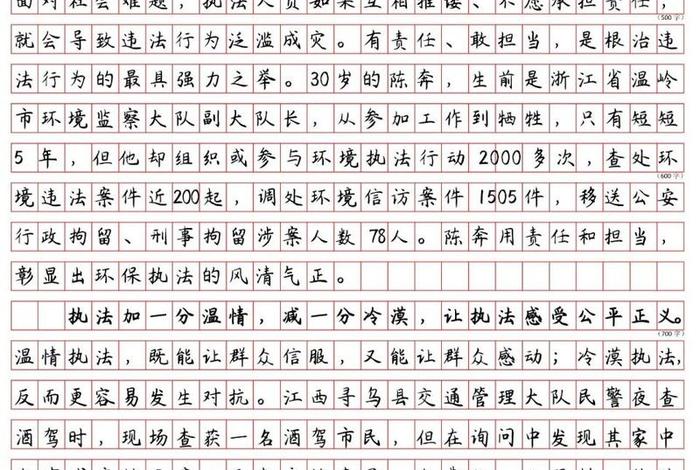 面对社会难题，执法人员如果互相推诿、不愿承担责任，
(500字)
就会导致违法行为泛滥成灾。有责任、敢担当，是根治违
法行为的最具强力之举。30岁的陈奔，生前是浙江省温岭
市环境监察大队副大队长，从参加工作到牺牲，只有短短
5年，但他却组织或参与环境执法行动2000多次，查处环
(600字)
境违法案件近200起，调处环境信访案件1505件，移送公安
行政拘留、刑事拘留涉案人数78人。陈奔用责任和担当，
彰显出环保执法的风清气正。
执法加一分温情，减一分冷漠，让执法感受公平正义。
(700字)
温情执法，既能让群众信服，又能让群众感动；冷漠执法，
反而更容易发生对抗。江西寻乌县交通管理大队民警夜查
酒驾时，现场查获一名酒驾市民，但在询问中发现其家中